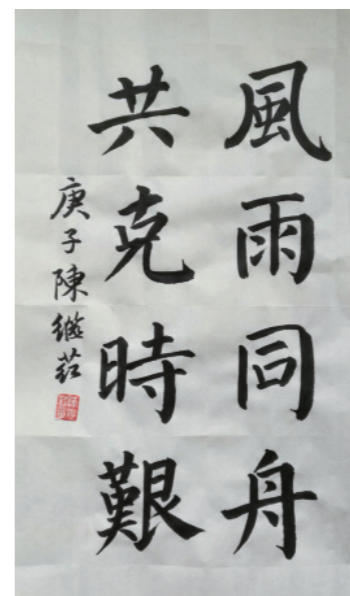 風雨同舟
共克時艱
庚子陳繼茹